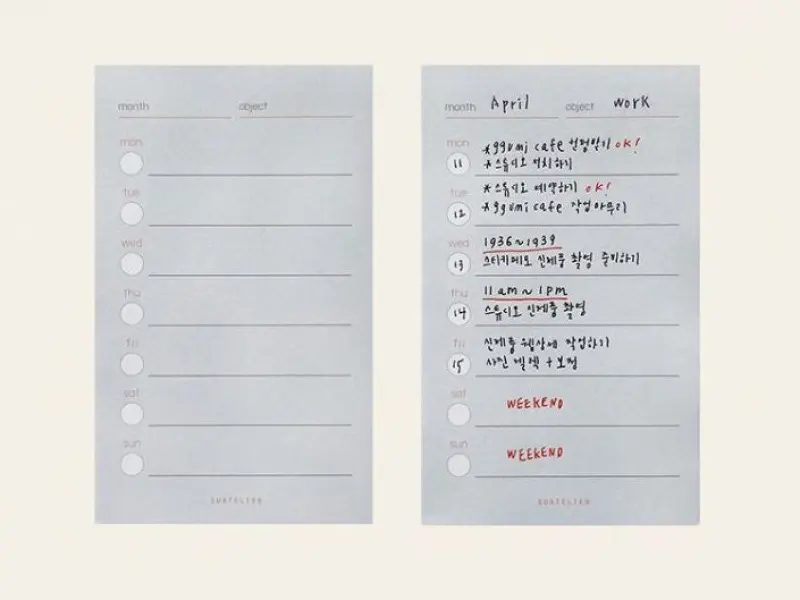 month object
mon
tue
wed
thu
fri
sat
sun
SUATELIER
month April object work
mon 11 *ggumi cafe OK!
*스튜디오 하기
tue 12 *스튜디오 예약하기 OK!
*ggumi cafe 작업 마무리
wed 13 1936~1939
스티키메모 신제품 촬영 준비하기
thu 14 11am~1pm
스튜디오 신제품 촬영
fri 15 신제품 웹상세 작업하기
사진 셀렉 + 보정
sat WEEKEND
sun WEEKEND
SUATELIER